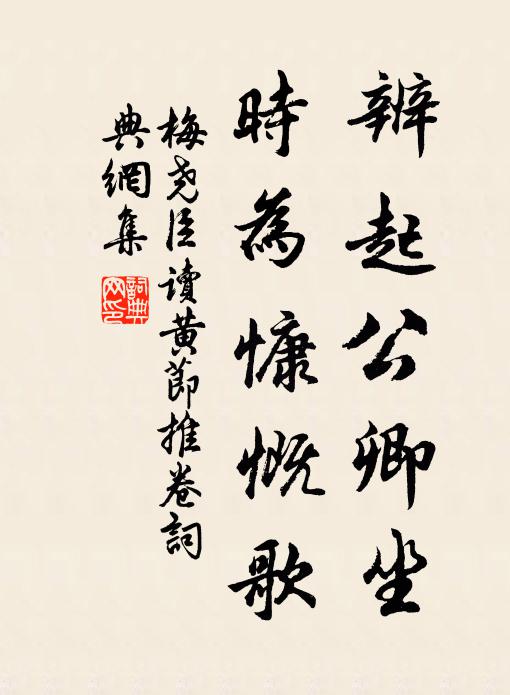 辨起公卿坐
時為慷慨歌
梅堯臣讀黃節推卷詞
典網集
詞典
网印